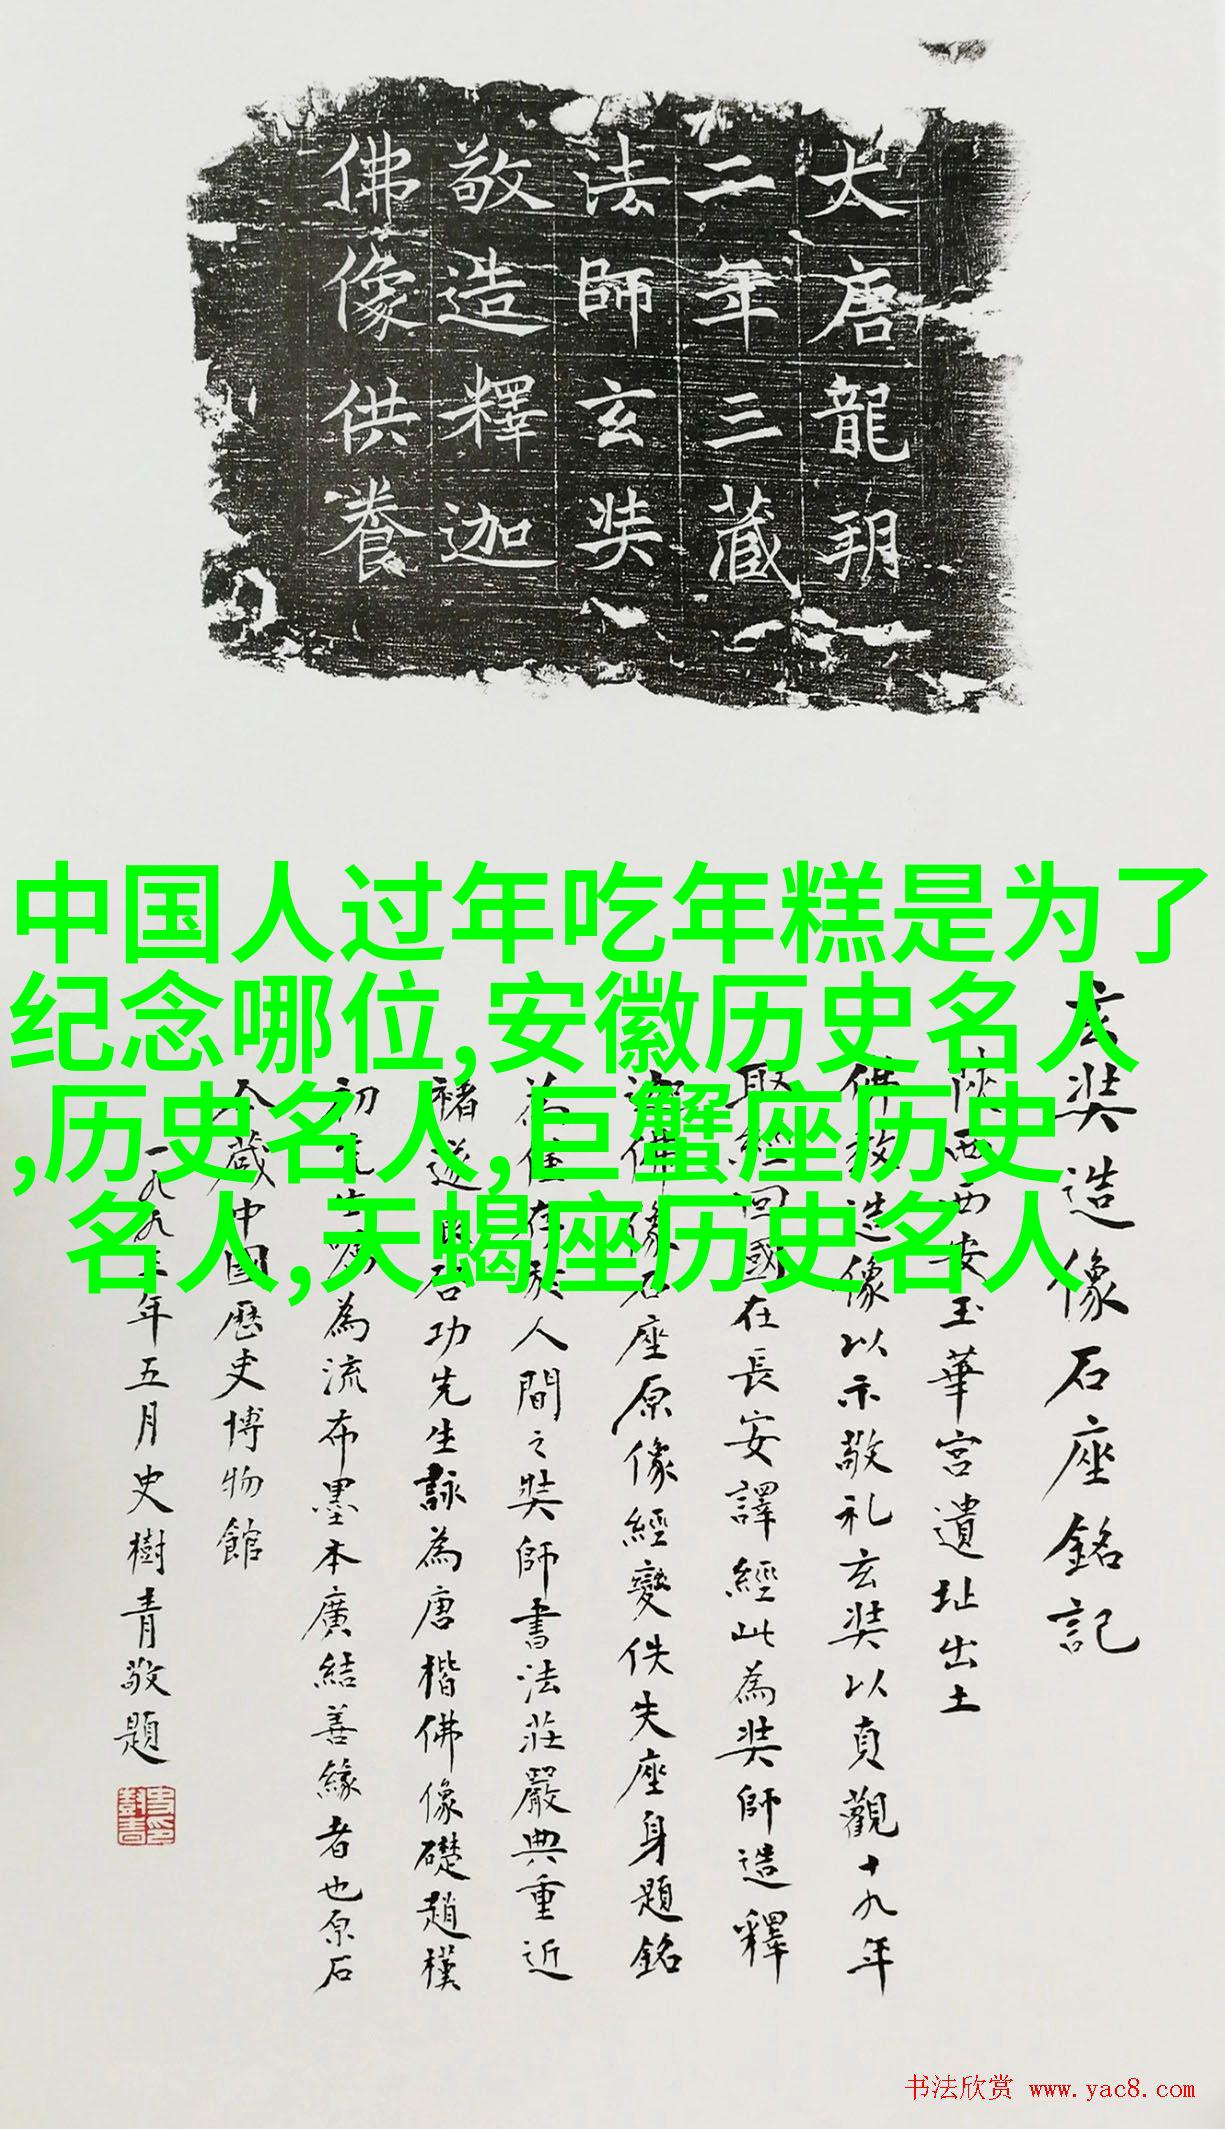 大唐龍朔
二年三藏
法師玄奘
敬造釋迦
佛像供養
中国人过年吃年糕是为了
纪念哪位,安徽历史名人
,历史名人,巨蟹座历史
名人,天蝎座历史名人
玄奘造像石座銘記
陝西西安玉華宮遺址出土
佛教造像以示敬礼玄奘以貞觀十九年
取經回國在長安譯經此為奘師造釋
迦佛像石座原像經變佚失座身題銘
人間之奘師書法莊嚴典重近
褚遂良启功先生詠為唐楷佛像礎趙樸
初先生属為流布墨本廣結善緣者也原石
今藏中國歷史博物館
一九九三年五月史樹青敬題
书法欣赏 www.yac8.com